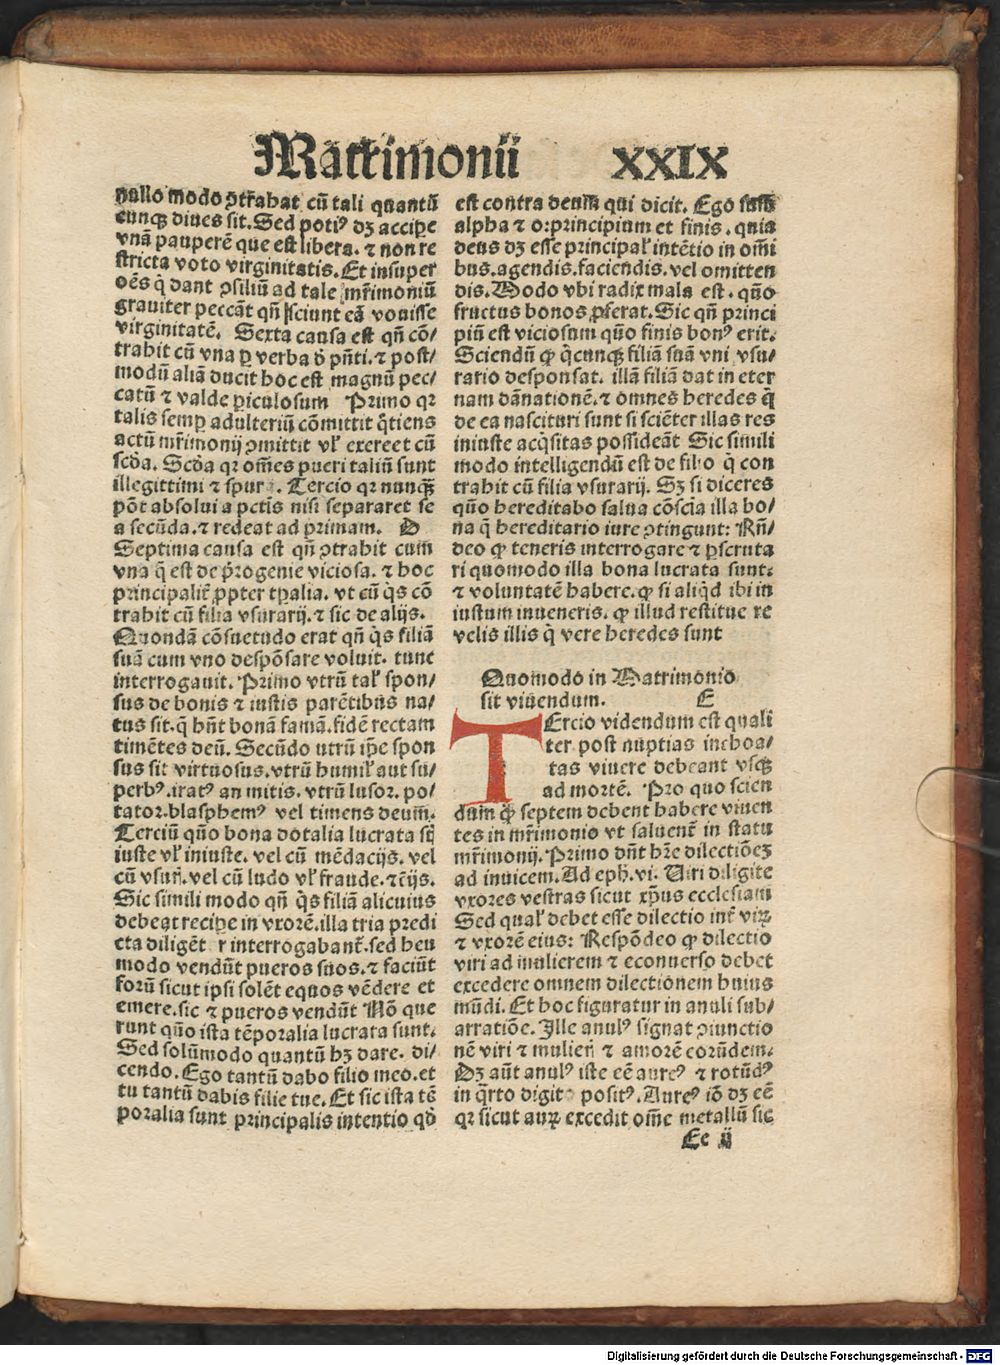 Mãtrimonii XXIX
nullo modo ꝯtrahat cũ tali quantũ
cunqꝫ diues sit. Sed potiꝰ dꝫ accipe
vnã pauperẽ que est libera. ⁊ non re
stricta voto virginitatis. Et insuper
oẽs q̇ dant ꝯsiliũ ad tale mr̃imoniũ
grauiter peccãt qñ sciunt eã vouisse
virginitatẽ. Sexta causa est qñ cõ⸗
trahit cũ vna ꝑ verba ð pñti. ⁊ post⸗
modũ aliã ducit hoc est magnũ pec⸗
catũ ⁊ valde ꝑiculosum Primo qꝛ
talis semꝑ adulteriũ cõmittit q̃tiens
actũ mr̃imonij ꝯmittit vl̕ exercet cũ
scðа. Scðа qꝛ om̃es pueri taliũ sunt
illegittimi ⁊ spur. Tercio qꝛ nunqꝫ
põt absolui a pctĩs nisi separaret se
a secũda. ⁊ redeat ad primam. D
Septima causa est qñ ꝯtrahit cum
vna q̃ est de p̃rogenie viciosa. ⁊ hoc
principalit̕ ꝓpter tꝑalia. vt cũ q̇s cõ
trahit cũ filia vsurarij. ⁊ sic de alijs.
Quondã cõsuetudo erat qñ q̇s filiã
suã cum vno despõsare voluit. tunc
interrogauit. Primo vtrũ tal̕ spon⸗
sus de bonis ⁊ iustis parẽtibus na⸗
tus sit. q̇ hñt bonã famã. fidẽ rectam
timẽtes deũ. Secũdo utrũ ip̃e spon
sus sit virtuosus. vtrũ humil̕ aut su⸗
perbꝰ. iratꝰ an mitis. vtrũ lusor. po⸗
tator. blasphemꝰ vel timens deum.
Terciũ quõ bona dotalia lucrata sĩt
iuste vl̕ iniuste. vel cũ mẽdacijs. vel
cũ vsur̃. vel cũ ludo vl̕ fraude. ⁊c̃ijs.
Sic simili modo qñ q̇s filiã alicuius
debeat recipe in vxorẽ. illa tria predi
cta diligẽt r interrogabant̕. sed heu
modo vendũt pueros suos. ⁊ faciũt
forũ sicut ipsi solẽt equos vẽdere et
emere. sic ⁊ pueros vendũt Nõ que
runt quõ ista tẽporalia lucrata sunt.
Sed solũmodo quantũ hꝫ dare. di⸗
cendo. Ego tantũ dabo filio meo. et
tu tantũ dabis filie tue. Et sic ista tẽ
poralia sunt principalis intentio qð
est contra deum qui dicit. Ego sum
alpha ⁊ o: principium et finis. quia
deus dꝫ esse principal̕ intẽtio in om̃i
bus. agendis. faciendis. vel omitten
dis. Modo vbi radix mala est. quõ
fructus bonos ꝓferat. Sic qñ princi
piũ est viciosum quõ finis bonꝰ erit.
Sciendũ ꝙ q̇cunqꝫ filiã suã vni vsu⸗
rario desponsat. illã filiã dat in eter
nam dãnationẽ. ⁊ omnes heredes q̇
de ea nascituri sunt si sciẽter illas res
iniuste acq̇sitas possideãt Sic simili
modo intelligendũ est de filio q̇ con
trahit cũ filia vsurarij. Sꝫ si diceres
quõ hereditabo salua cõsciã illa bo⸗
na q̃ hereditario iure ꝯtingunt: Rñ⸗
deo ꝙ teneris interrogare ⁊ ꝑscruta
ri quomodo illa bona lucrata sunt.
⁊ voluntatẽ habere. ꝙ si aliq̇d ibi in
iustum inueneris. ꝙ illud restitue re
velis illis q̇ vere heredes sunt
Quomodo in Matrimonio
sit viuendum. E
TErcio videndum est quali
ter post nuptias inchoa⸗
tas viuere debeant vsqꝫ
ad mortẽ. Pro quo scien
dum ꝙ septem debent habere viuen
tes in mr̃imonio vt saluent̕ in statu
mr̃imonij. Primo dñt hr̃e dilectiõeꝫ
ad inuicem. Ad eph. vi. Uiri diligite
vxores vestras sicut xp̃us ecclesiam
Sed qual̕ debet esse dilectio int̕ virꝝ
⁊ vxorẽ eius: Respõdeo ꝙ dilectio
viri ad mulierem ⁊ econuerso debet
excedere omnem dilectionem huius
mũdi. Et hoc figuratur in anuli sub⸗
arratiõe. Ille anulꝰ signat ꝯiunctio
nẽ viri ⁊ mulier̃ ⁊ amorẽ eorũdem.
Dꝫ aũt anulꝰ iste eẽ aureꝰ ⁊ rotũdꝰ
in q̃rto digito positꝰ. Aureꝰ iõ dꝫ eẽ
qꝛ sicut aurꝝ excedit om̃e metallũ sic
Ee ij
Digitalisierung gefördert durch die Deutsche Forschungsgemeinschaft - DFG